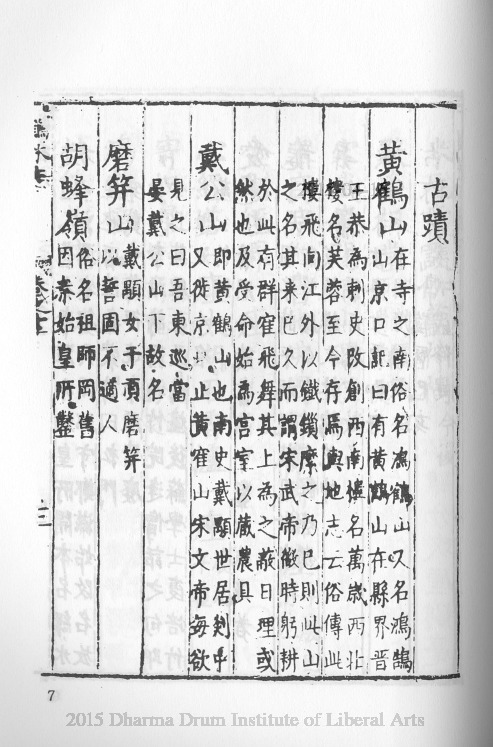 古蹟
黃鶴山在寺之南俗名鴻鶴山又名鴻鵠
山京口記曰有黃鶴山在縣界晋
王恭為刺史改創西南樓名萬歲西北
樓名芙蓉至今存焉輿地志云俗傳此
樓飛向江外以鐵鎖縻之乃已則此山
之名其来已久而謂宋武帝微時躬耕
於此有群隺飛舞其上為之蔽日理或
然也及受命始為宮室以藏農具
戴公山即黃鶴山也南史戴顒世居剡中
又徙京口止黃隺山宋文帝每欲
見之曰吾東巡當
晏戴公山下故名
磨笄山戴顒女于頂磨笄
以誓固不適人
胡蜂嶺俗名祖師岡舊
因秦始皇所鑿
7
2015 Dharma Drum Institute of Liberal Arts